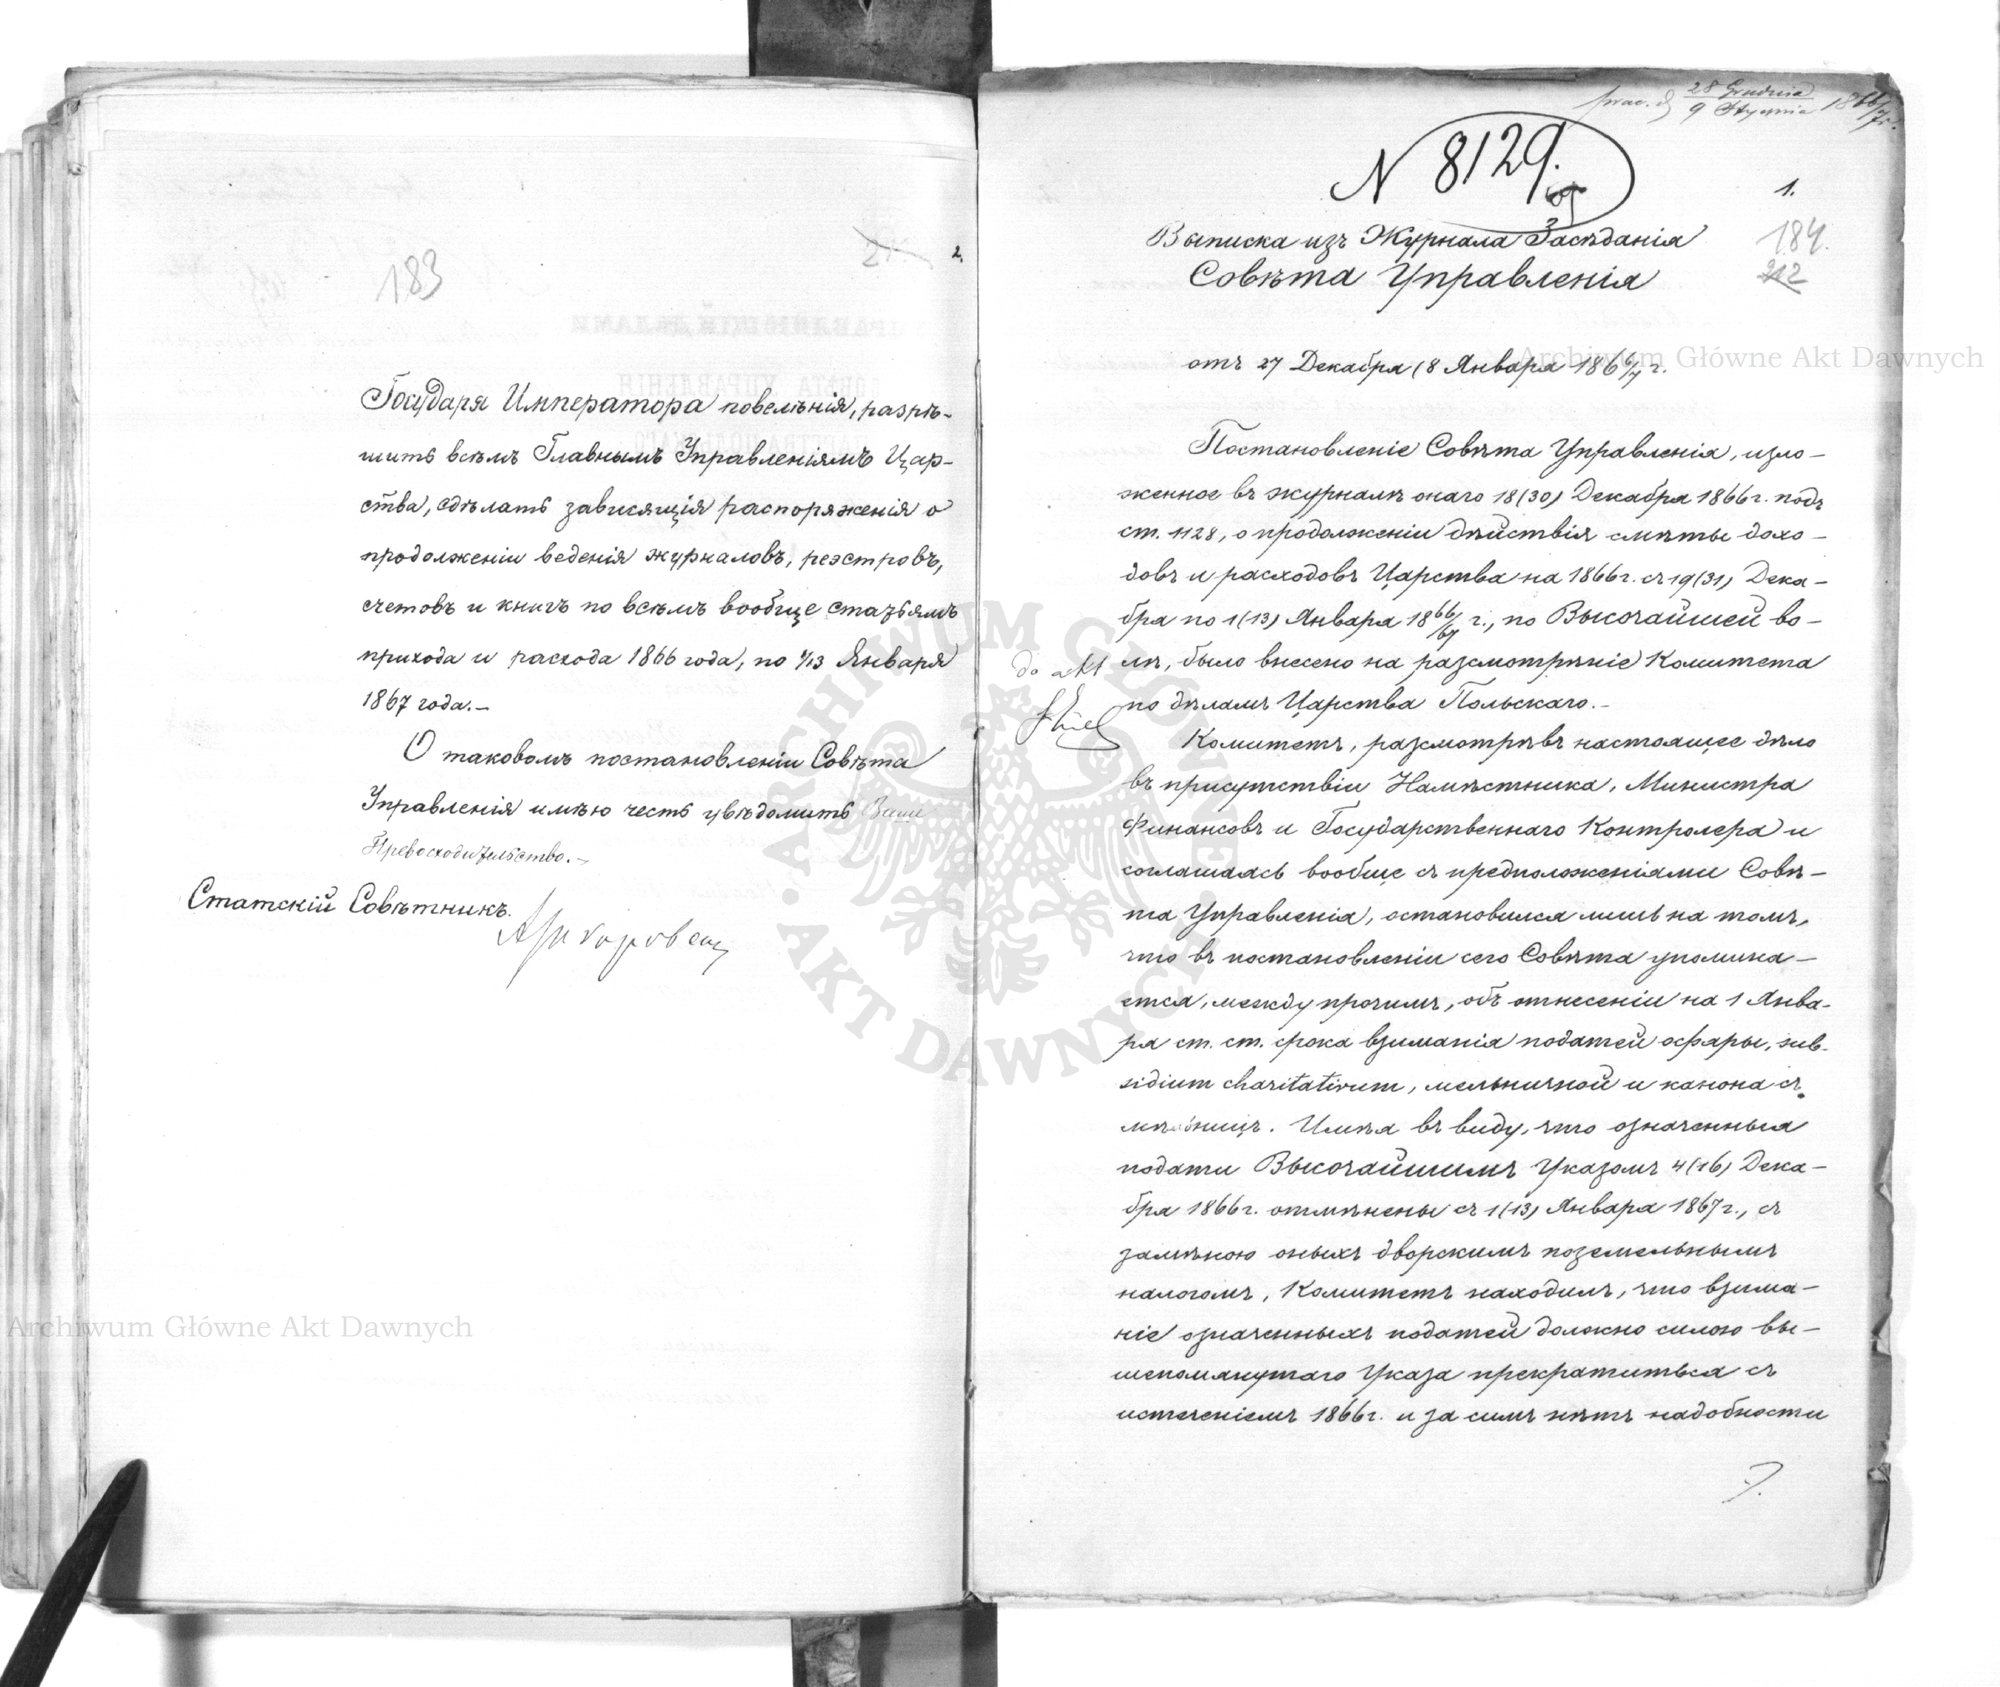 183
2.
Государя Императора повелѣнія, разрѣ-
шить всѣмъ Главнымъ Управленіямъ Цар-
ства, сдѣлать зависящія распоряженія о
продолженіи веденія журналовъ, реэстровъ,
счетовъ и книгъ по всѣмъ вообще статьямъ
прихода и расхода 1866 года, по 1/13 Января
1867 года.-
О таковомъ постановленіи Совѣта
Управленія имѣю честь увѣдомить Ваше
Превосходительство.-
Статскій Совѣтникъ.
28 Grudnia
9 Stycznia 1866/7 r.
N 8129.
1.
Выписка изъ Журнала Засѣданія
184.
Совѣта Управленія
212
отъ 27 Декабря (8 Января 1866/7 г.
Archiwum Główne Akt Dawnych
Постановленіе Совѣта Управленія, изло-
женное въ журналѣ онаго 18(30) Декабря 1866 г. подъ
ст. 1128, о продолженіи дѣйствія смѣты дохо-
довъ и расходовъ Царства на 1866 г. съ 19(31) Дека-
бря по 1(13) Января 1866/67 г., по Высочайшей во-
лѣ, было внесено на разсмотрѣніе Комитета
do akt
по дѣламъ Царства Польскаго.-
Комитетъ, разсмотрѣвъ настоящее дѣло
въ присутствіи Намѣстника, Министра
Финансовъ и Государственнаго Контролера и
соглашаясь вообще съ предположеніями Совѣ-
та Управленія, остановился лишь на томъ,
что въ постановленіи сего Совѣта упомина-
ется, между прочимъ, объ отнесеніи на 1 Янва-
ря ст. ст. срока взиманія податей офяры, sub-
sidium charitativum, мельничной и канона съ
мѣльницъ. Имѣя въ виду, что означенныя
подати Высочайшимъ Указомъ 4(16) Дека-
бря 1866 г. отмѣнены съ 1(13) Января 1867 г., съ
замѣною оныхъ дворскимъ поземельнымъ
налогомъ, Комитетъ находилъ, что взима-
ніе означенныхъ податей должно силою вы-
шепомянутаго Указа прекратиться съ
истеченіемъ 1866 г. и за симъ нѣтъ надобности
ARCHIWUM GŁÓWNE
AKT DAWNYCH
Archiwum Główne Akt Dawnych